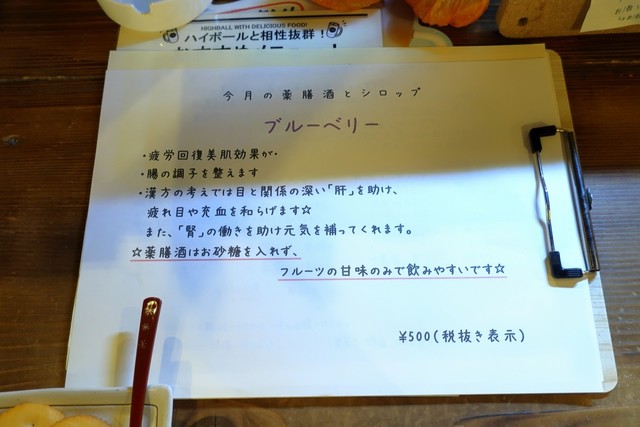 HIGHBALL WITH DELICIOUS FOOD!
ハイボールと相性抜群!
今月の薬膳酒とシロップ
ブルーベリー
・疲労回復美肌効果が・
・腸の調子を整えます
・漢方の考えでは目と関係の深い「肝」を助け、
疲れ目や充血を和らげます☆
また、「腎」の働きを助け元気を補ってくれます。
☆薬膳酒はお砂糖を入れず、
フルーツの甘味のみで飲みやすいです☆
¥500(税抜き表示)